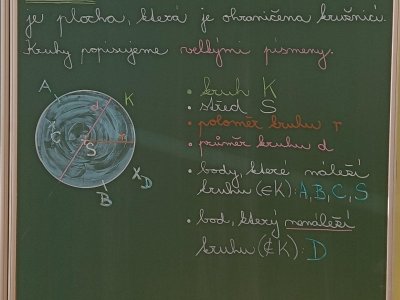 je plocha, která je ohraničena kružnicí.
Kruhy popisujeme velkými písmeny.
A
d
K
C
S
r
B
X
D
• kruh K
• střed S
• poloměr kruhu r
• průměr kruhu d
• body, které náleží
kruhu (∈K): A, B, C, S
• bod, který nenáleží
kruhu (∉K): D